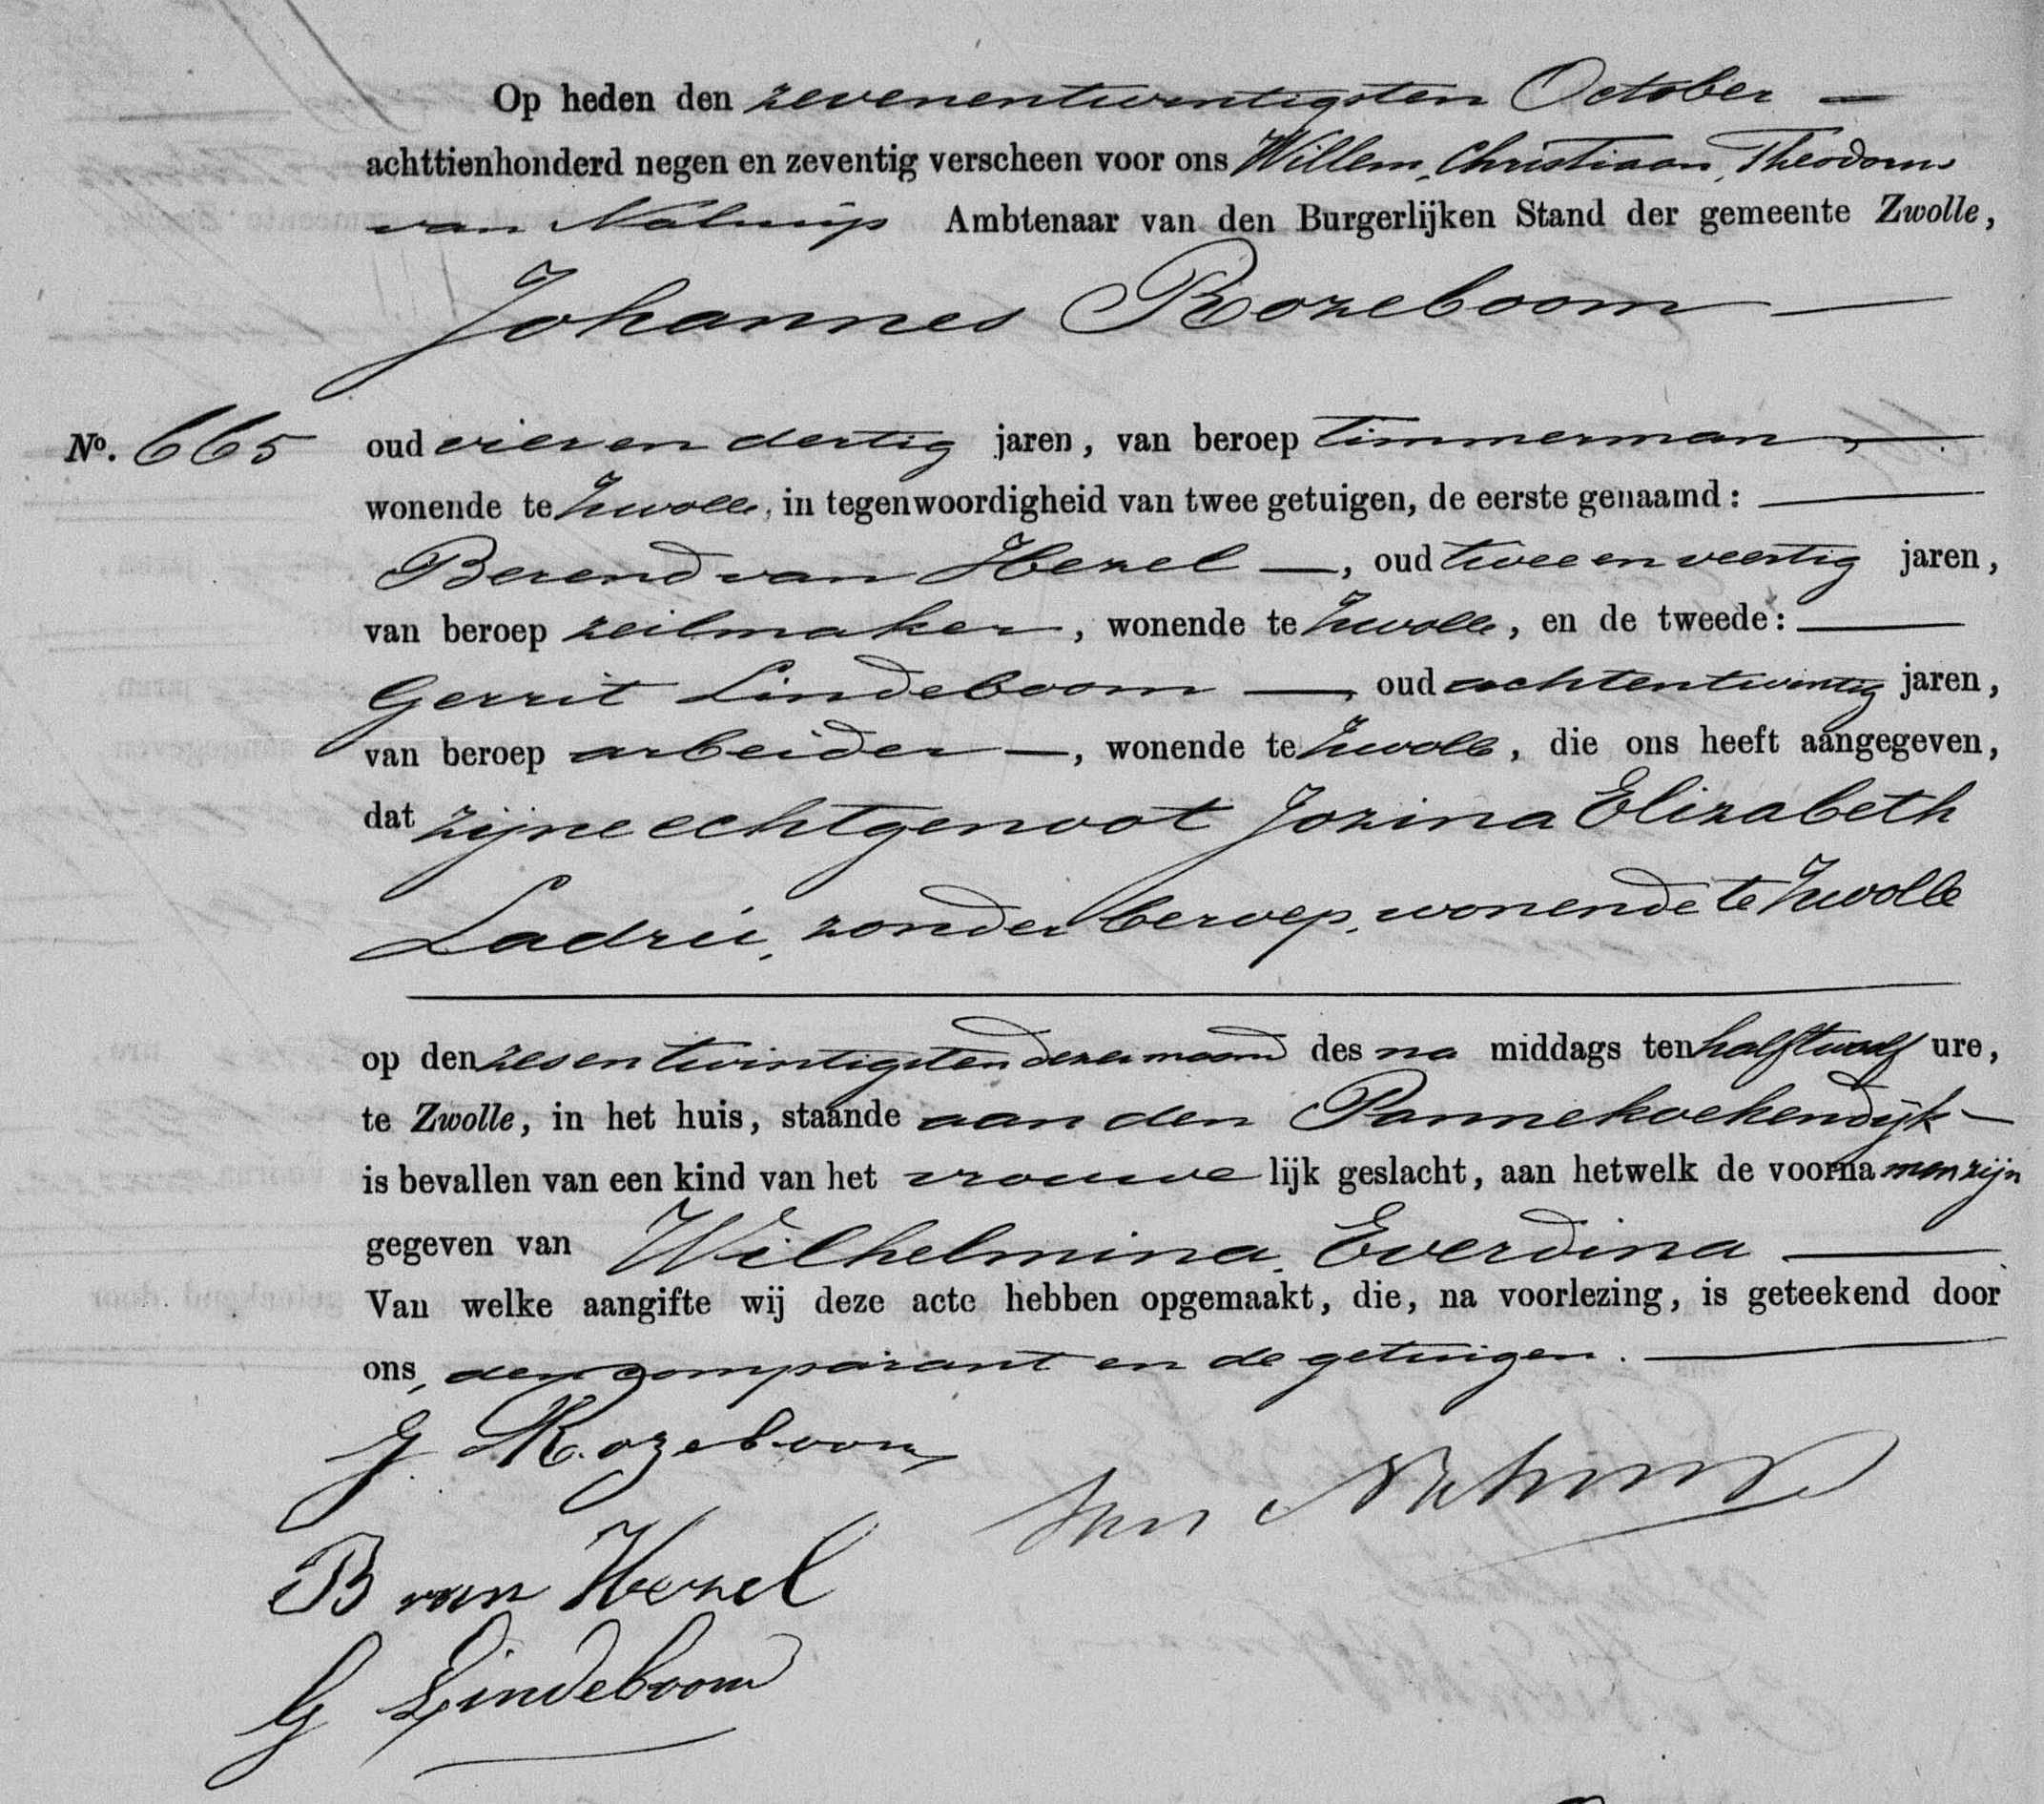 Op heden den zevenentwintigsten October —
achttienhonderd negen en zeventig verscheen voor ons Willem, Christiaan, Theodorus
van Nahuijs Ambtenaar van den Burgerlijken Stand der gemeente Zwolle,
Johannes Rozeboom —
No. 665
oud vier en dertig jaren, van beroep timmerman, —
wonende te Zwolle, in tegenwoordigheid van twee getuigen, de eerste genaamd: —
Berend van Hezel —, oud twee en veertig jaren,
van beroep zeilmaker, wonende te Zwolle, en de tweede: —
Gerrit Lindeboom —, oud achtentwintig jaren,
van beroep arbeider —, wonende te Zwolle, die ons heeft aangegeven,
dat zijne echtgenoot Jozina Elizabeth
Ladru, zonder beroep, wonende te Zwolle
op den zes en twintigsten dezer maand des na middags ten half twaalf ure,
te Zwolle, in het huis, staande aan den Pannekoekendijk —
is bevallen van een kind van het vrouwe lijk geslacht, aan hetwelk de voorna men zijn
gegeven van Wilhelmina, Everdina —
Van welke aangifte wij deze acte hebben opgemaakt, die, na voorlezing, is geteekend door
ons, den comparant en de getuigen. —
J. Rozeboom
van Nahuijs
B van Hezel
G Lindeboom